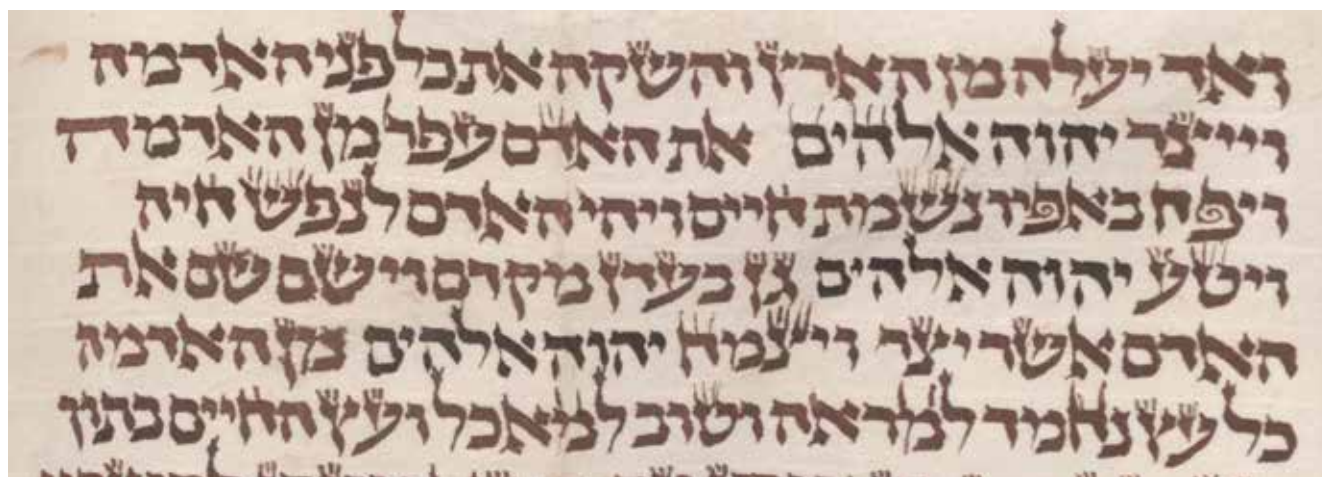 ואד יעלה מן הארץ והשקה את כל פני האדמה
וייצר יהוה אלהים את האדם עפר מן האדמה
ויפח באפיו נשמת חיים ויהי האדם לנפש חיה
ויטע יהוה אלהים גן בעדן מקדם וישם שם את
האדם אשר יצר ויצמח יהוה אלהים מן האדמה
כל עץ נחמד למראה וטוב למאכל ועץ החיים בתוך